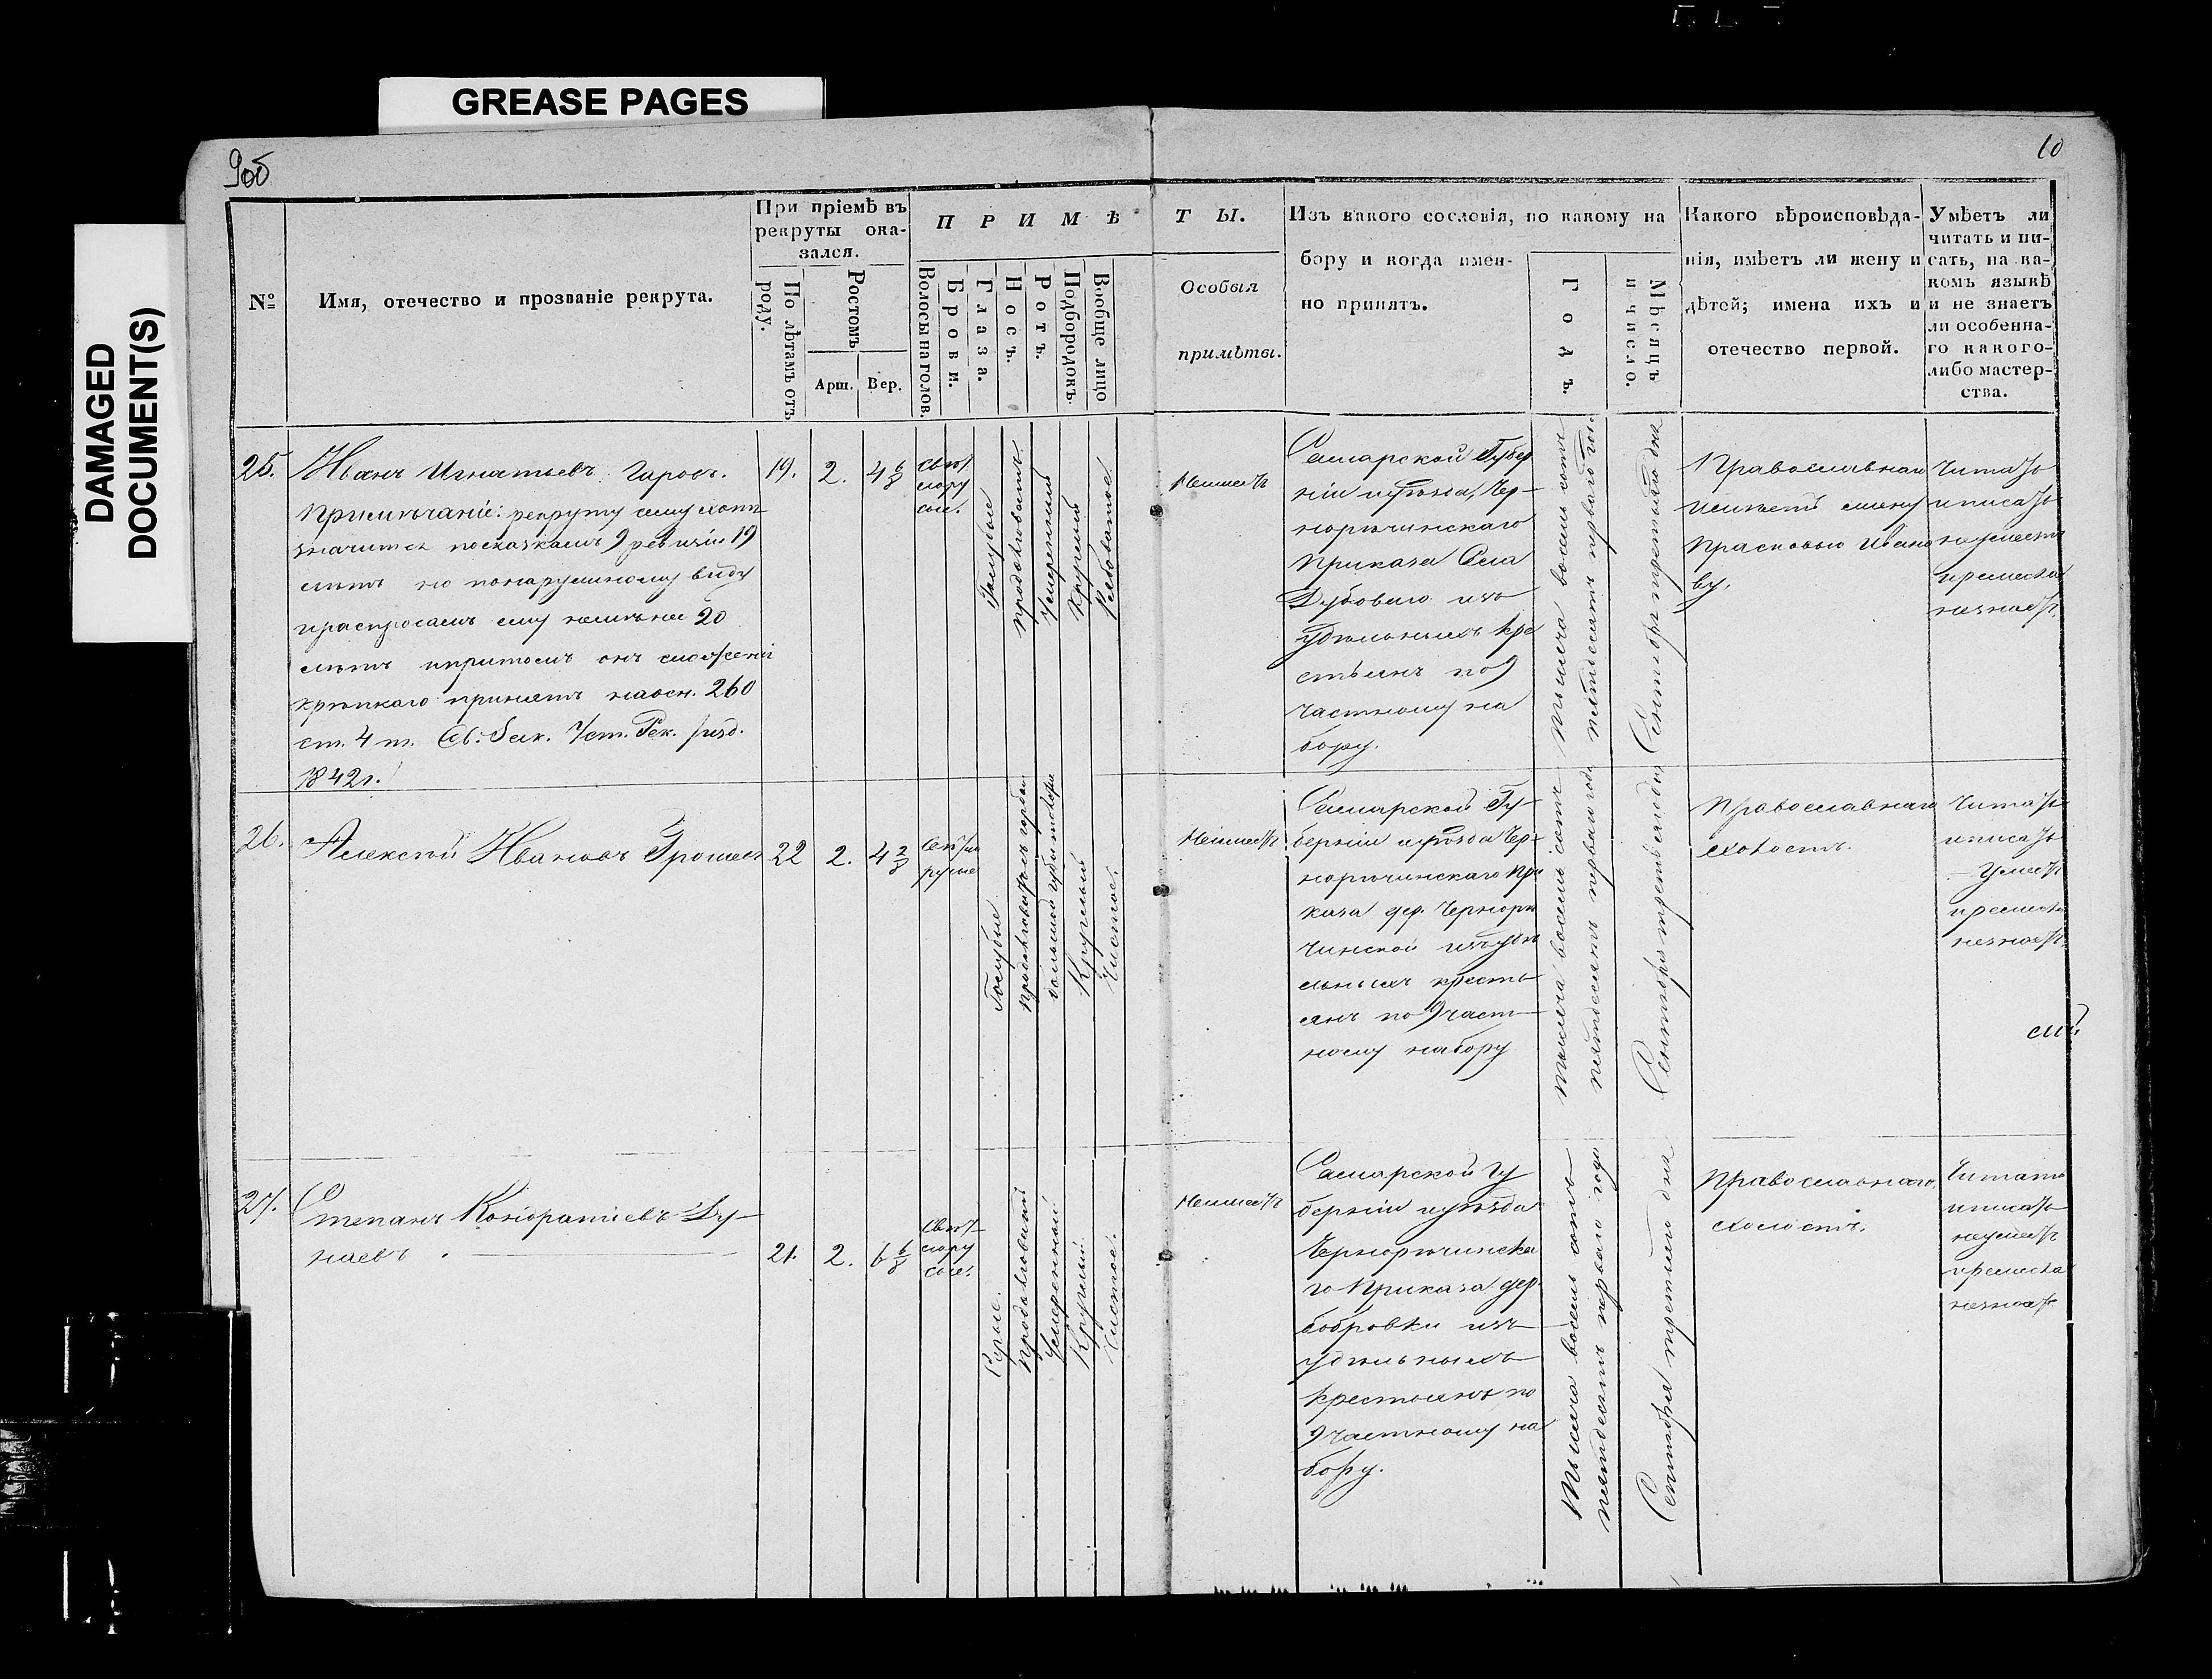 GREASE PAGES
DAMAGED
DOCUMENT(S)
9об
10
№
Имя, отечество и прозваніе рекрута.
При пріемѣ въ
рекруты ока-
зался.
По лѣтамъ отъ
роду.
Ростомъ
Арш.
Вер.
П Р И М Ѣ
Волосы на голов.
Брови.
Глаза.
Носъ.
Ротъ.
Подбородокъ.
Вообще лицо
Т Ы.
Особыя
примѣты.
Изъ какого сословія, по какому на
бору и когда имен-
но принятъ.
Годъ
Мѣсяцъ
и число.
Какого вѣроисповѣда-
нія, имѣетъ ли жену и
дѣтей; имена ихъ и
отечество первой.
Умѣетъ ли
читать и пи-
сать, на ка-
комъ языкѣ
и не знаетъ
ли особенна-
го какого-
либо мастер-
ства.
25.
Иванъ Игнатьевъ
Примѣчаніе: рекруту сему хотя
значится по сказкамъ 9 ревизіи 19
лѣтъ но по наружному виду
и распросамъ ему не менѣе 20
лѣтъ и притомъ онъ сложенія
крѣпкаго принятъ на осн. 260
ст. 4 т. Св. Зак. Уст. Рек. изд.
1842 г.
19.
2.
4 6/8
свѣт
лору
сые.
Голубые
продолговатъ
Умѣренный
Круглый
Неимѣетъ
Самарской Губер
ніи и уѣзда Чер-
норѣчинскаго
Приказа Села
Дубоваго изъ
удѣльныхъ кре
стьянъ по 9
частному на
бору.
тысяча восемь сотъ
пятьдесятъ перваго года
Сентября третьяго дня
Православнаго
имѣетъ жену
Прасковью Ивано
ву.
Читать
и писать
не умѣетъ
и ремесла
не знаетъ.
26.
Алексѣй Ивановъ
22
2.
4 2/8
Свѣтло
русые
Голубые
Круглый
Чистое.
Неимѣетъ
Самарской Гу-
берніи и уѣзда Чер-
норѣчинскаго При
каза дер. Чернорѣ
чинской изъ удѣ
льныхъ кресть
янъ по 9 част-
ному набору
тысяча восемь сотъ
пятьдесятъ перваго года
Сентября третьяго дня
Православнаго
холостъ.
Читать
и писать
умѣетъ
и ремесла
не знаетъ.
27.
Степанъ Кондратьевъ Ду-
наевъ.
21.
2.
6 6/8
свѣт-
лору
сые.
Сѣрые.
Продолговатый
Умѣренный
Круглый.
Чистое.
Неимѣетъ
Самарской Гу
берніи и уѣзда
Чернорѣчинска
го Приказа дер.
Бобровки изъ
удѣльныхъ
крестьянъ по
9 частному на
бору.
тысяча восемь сотъ
пятьдесятъ перваго года
Сентября третьяго дня
Православнаго
холостъ.
Читать
и писать
не умѣетъ
и ремесла
не знаетъ.